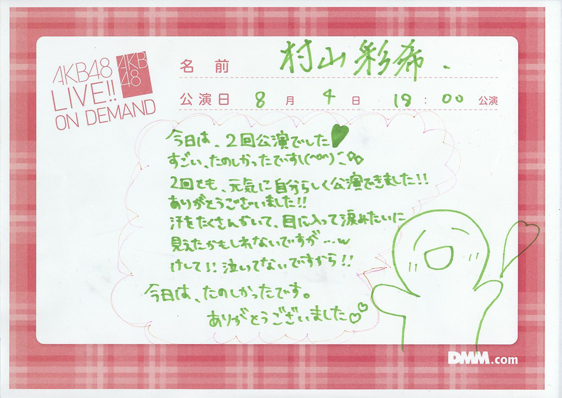 AKB48
LIVE!!
ON DEMAND
AKB
48
名前 村山彩希.
公演日 8月4日 19:00公演
今日は、2回公演でした
すごい、たのしかったです!(^o^)
2回とも、元気に自分らしく公演できました!!
ありがとうございました!!
汗をたくさんかいて、目に入って涙みたいに
見えたかもしれないですが…w
けして!!泣いてないですから!!
今日は、たのしかったです。
ありがとうございました
DMM.com